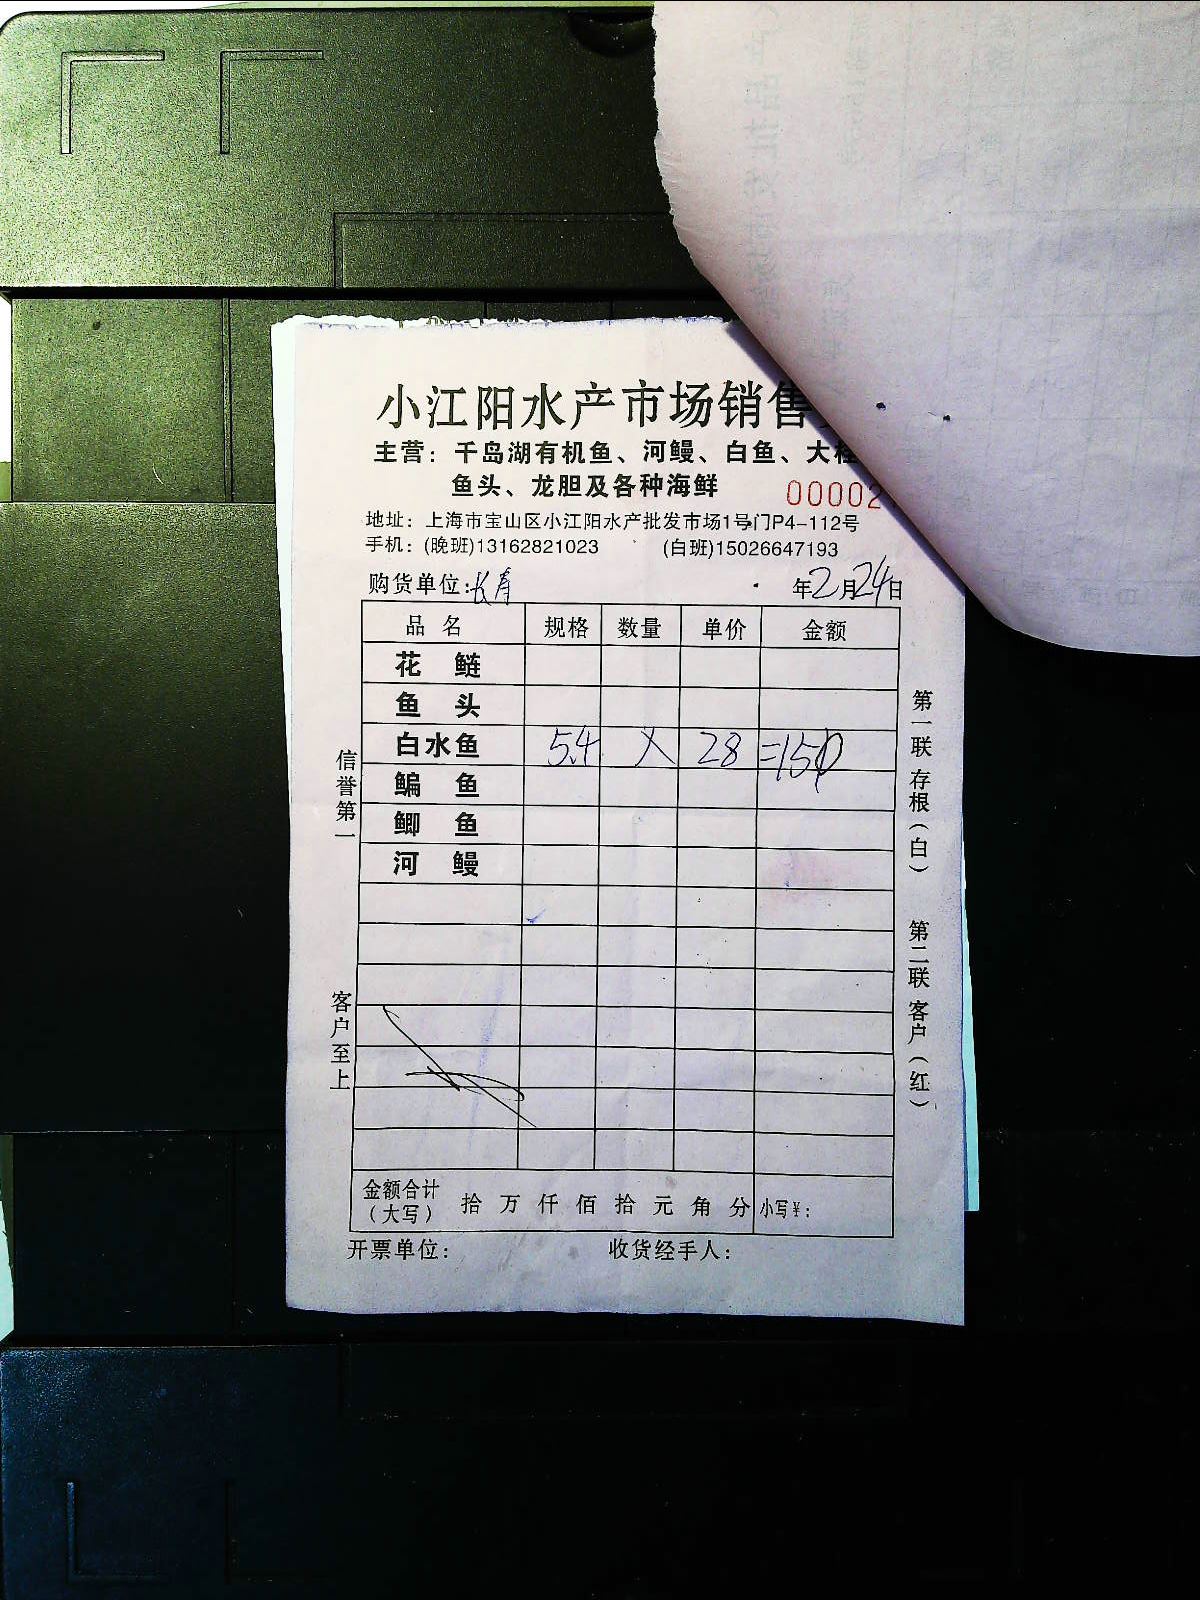 小江阳水产市场销售
主营：千岛湖有机鱼、河鳗、白鱼、大桂
鱼头、龙胆及各种海鲜
00002
地址：上海市宝山区小江阳水产批发市场1号门P4-112号
手机：(晚班)13162821023 (白班)15026647193
购货单位:长寿 年2月24日
品名 规格 数量 单价 金额
花鲢
鱼头
白水鱼 5.4 × 28 =150
鳊鱼
鲫鱼
河鳗
金额合计（大写） 拾 万 仟 佰 拾 元 角 分 小写￥:
开票单位： 收货经手人：
信誉第一
客户至上
第一联 存根（白）
第二联 客户（红）